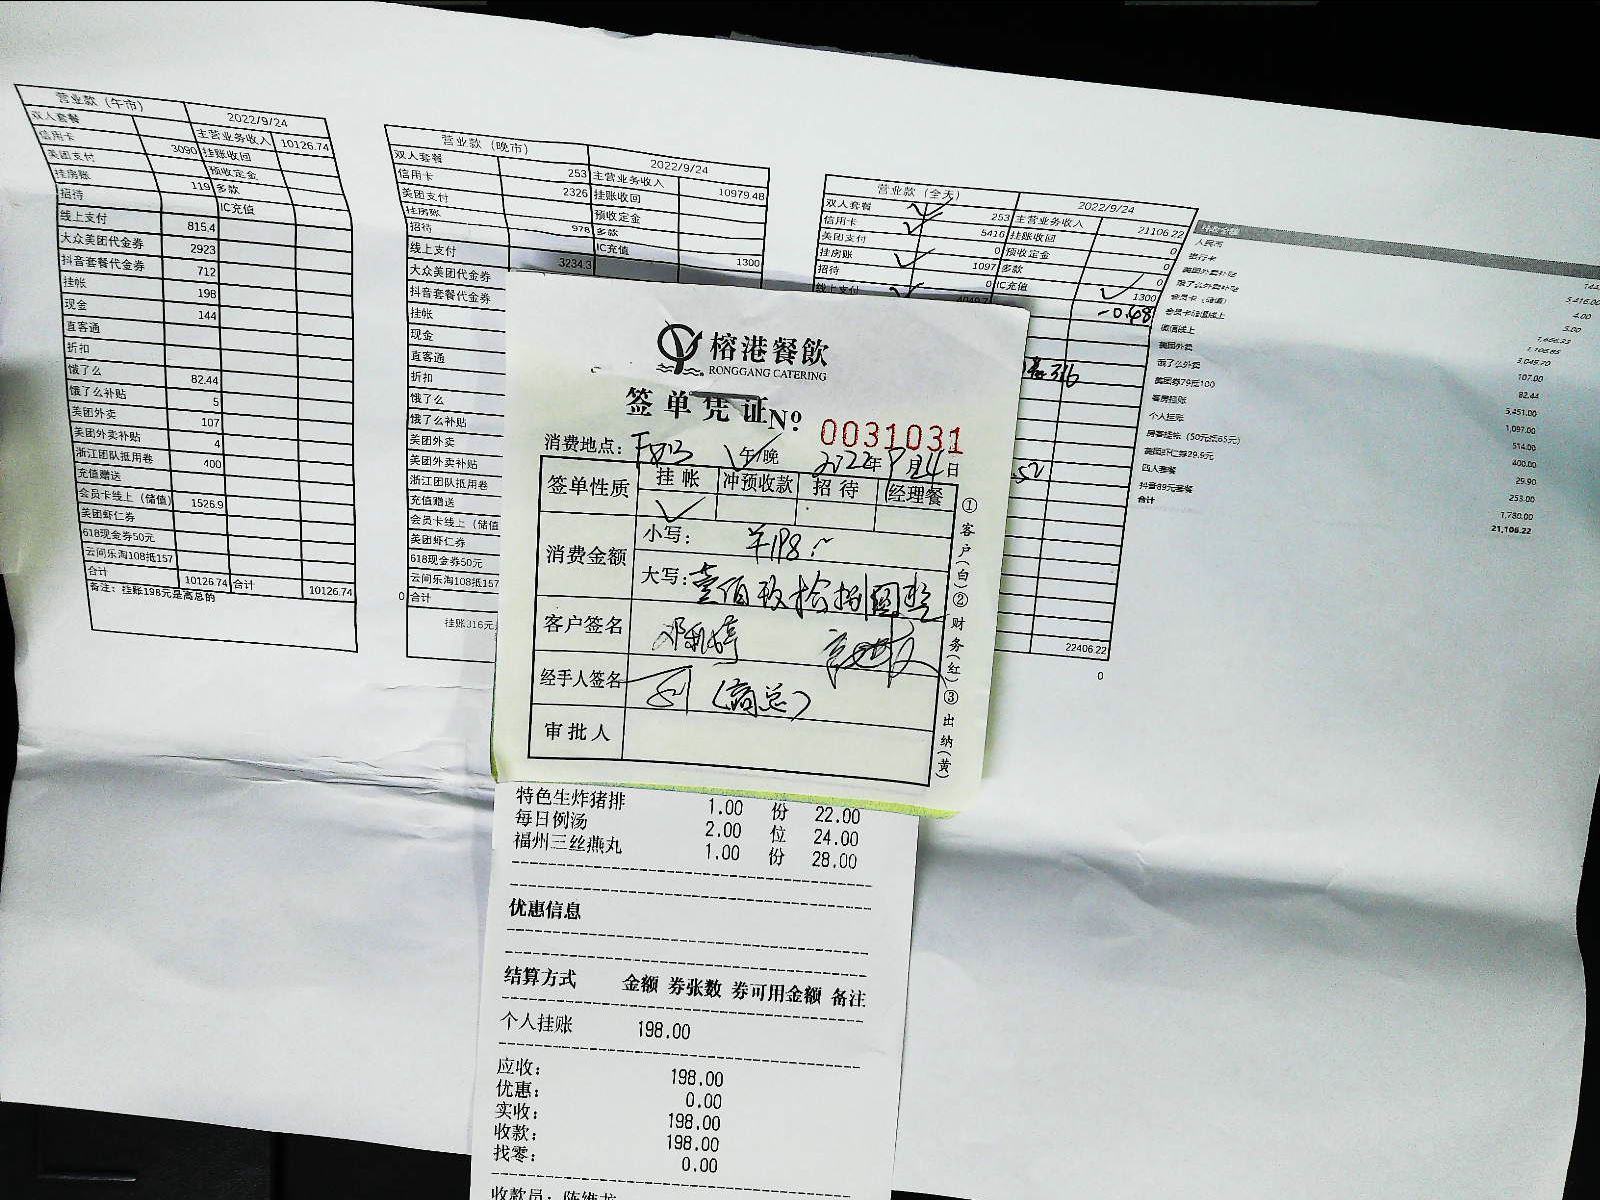 营业款（午市） 2022/9/24
双人套餐 主营业务收入 10126.74
信用卡 3090 挂账收回
美团支付 预收定金
挂房账 119 多款
招待 IC充值
线上支付 815.4
大众美团代金券 2923
抖音套餐代金券 712
挂帐 198
现金 144
直客通
折扣
饿了么 82.44
饿了么补贴 5
美团外卖 107
美团外卖补贴 4
浙江团队抵用卷 400
充值赠送
会员卡线上（储值） 1526.9
美团虾仁券
618现金券50元
云间乐淘108抵157
合计 10126.74 合计 10126.74
备注：挂账198元是高总的
营业款（晚市） 2022/9/24
双人套餐 253 主营业务收入 10979.48
信用卡 2326 挂账收回
美团支付 预收定金
挂房账 978 多款
招待 IC充值 1300
线上支付 3234.3
大众美团代金券
抖音套餐代金券
挂帐
现金
直客通
折扣
饿了么
饿了么补贴
美团外卖
美团外卖补贴
浙江团队抵用卷
充值赠送
会员卡线上（储值
美团虾仁券
618现金券50元
云间乐淘108抵157
0 合计
挂账316元
营业款（全天） 2022/9/24
双人套餐 253 主营业务收入 21106.22
信用卡 5416 挂账收回 0
美团支付 0 预收定金 0
挂房账 1097 多款 0
招待 0 IC充值 1300
线上支付 4049.7 -0.48
316
52
22406.22
0
人民币 144
银行卡 5,416.00
美团外卖补贴 4.00
饿了么外卖补贴 5.00
会员卡（储值）
会员卡储值线上
微信线上
美团外卖 107.00
饿了么外卖 82.44
美团券79元100 5,451.00
客房挂账 1,097.00
个人挂账 514.00
房客挂帐（50元抵65元） 400.00
美团虾仁券29.9元 29.90
四人套餐 253.00
抖音89元套餐 1,780.00
合计 21,106.22
榕港餐飲
RONGGANG CATERING
签单凭证 No 0031031
消费地点： 午/晚 2022年9月24日
签单性质 挂帐 冲预收款 招待 经理餐
消费金额 小写： ¥198.-
大写：壹佰玖拾捌圆整
客户签名
经手人签名 (高总)
审批人
①客户(白)②财务(红)③出纳(黄)
特色生炸猪排 1.00 份 22.00
每日例汤 2.00 位 24.00
福州三丝燕丸 1.00 份 28.00
优惠信息
结算方式 金额 券张数 券可用金额 备注
个人挂账 198.00
应收： 198.00
优惠： 0.00
实收： 198.00
收款： 198.00
找零： 0.00
收款员：陈维龙